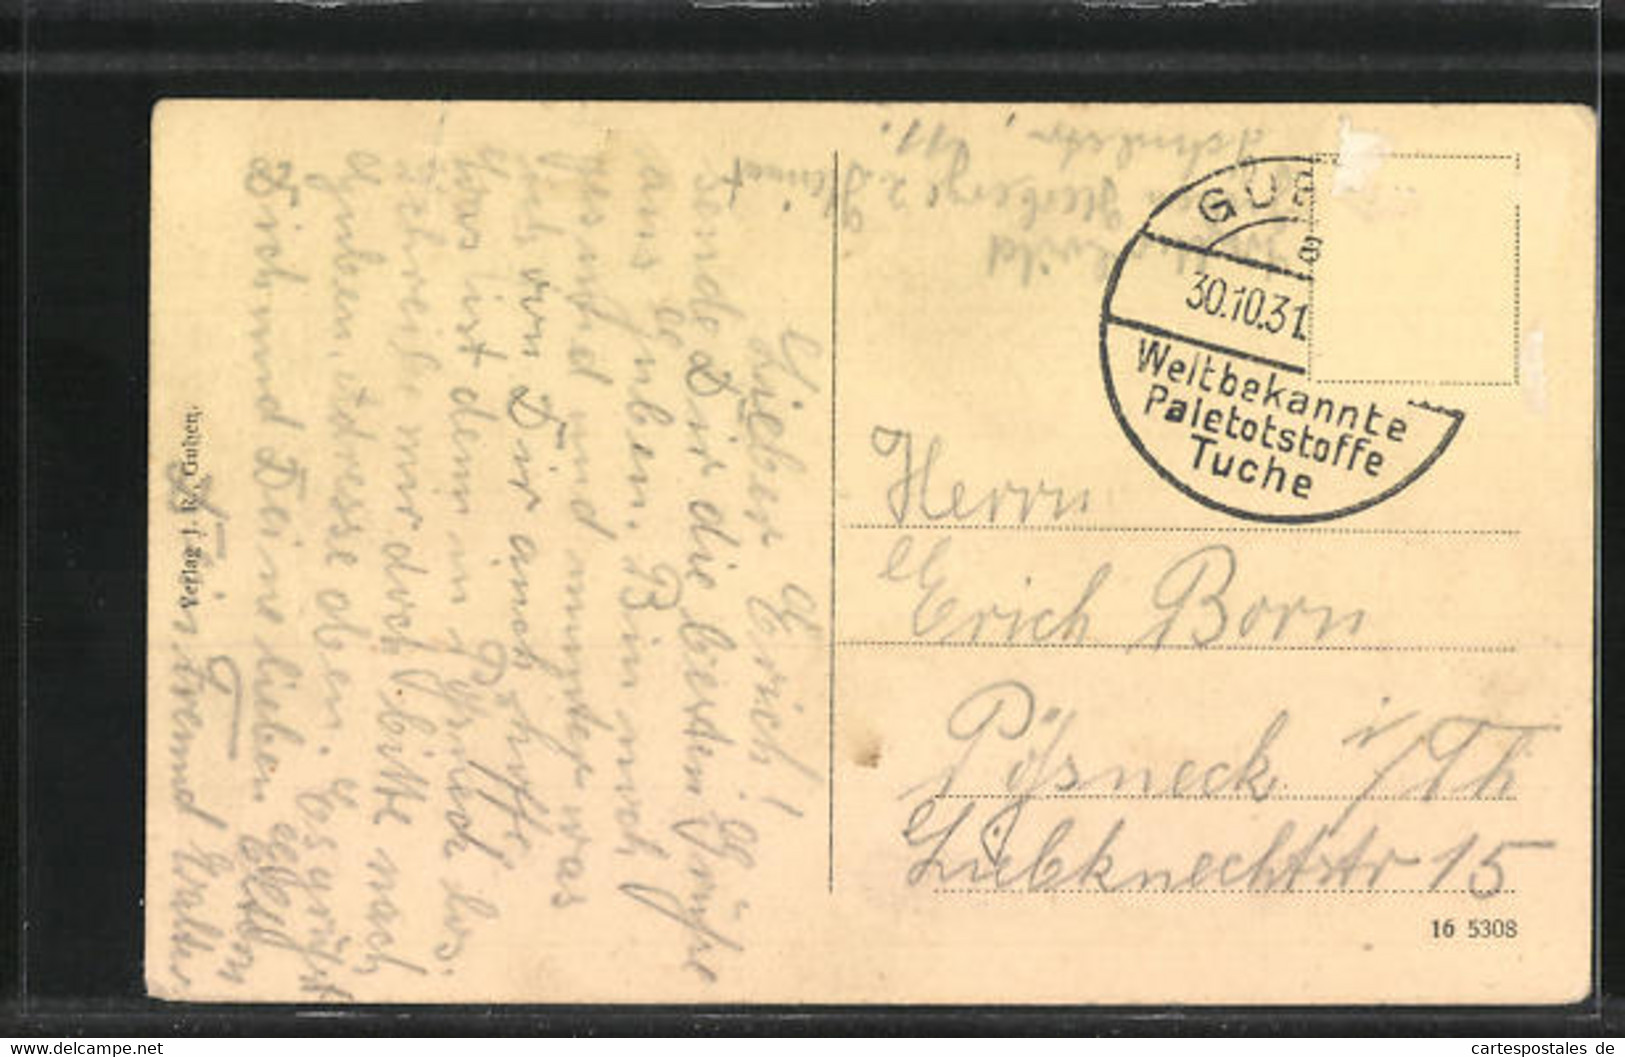 Lieber Erich!
sende Dir die besten Grüße
aus Guben. Bin noch
gesund und munter was
ich von Dir auch hoffe.
Was ist denn in Pößneck los.
Schreibe mir doch bitte nach
Guben. Adresse oben. Es grüßt
Dich und Deine lieben Eltern
Dein Freund Walter
Verlag J. R., Guben.
Herberge z. Heimat
GUB
30.10.31.
Weltbekannte
Paletotstoffe
Tuche
Herrn
Erich Born
Pößneck i/Th
Liebknechtstr 15
16 5308
delcampe.net
cartespostales de